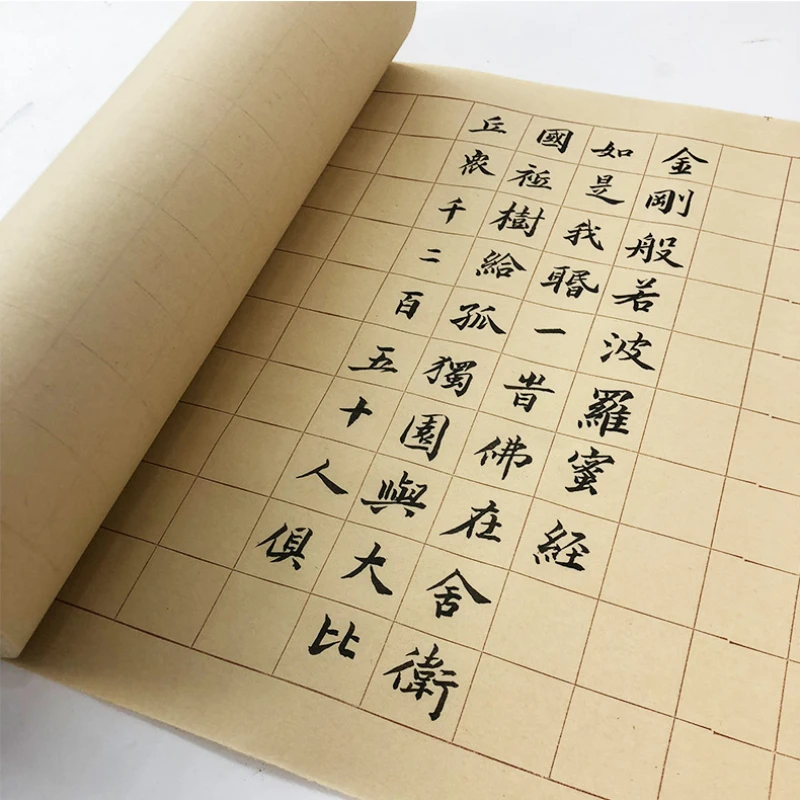 金剛般若波羅蜜経
如是我䎽一旹佛在舍衛
國祇樹給孤獨園與大比
丘衆千二百五十人俱